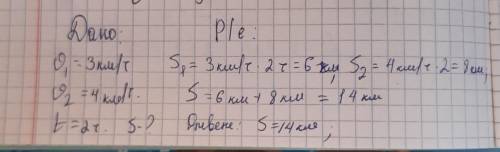 Дано: Р/е:
υ₁ = 3 км/ч S₁ = 3 км/ч · 2 ч = 6 км, S₂ = 4 км/ч · 2 = 8 км,
υ₂ = 4 км/ч. S = 6 км + 8 км = 14 км
t = 2 ч. S - ? Ответ: S = 14 км;